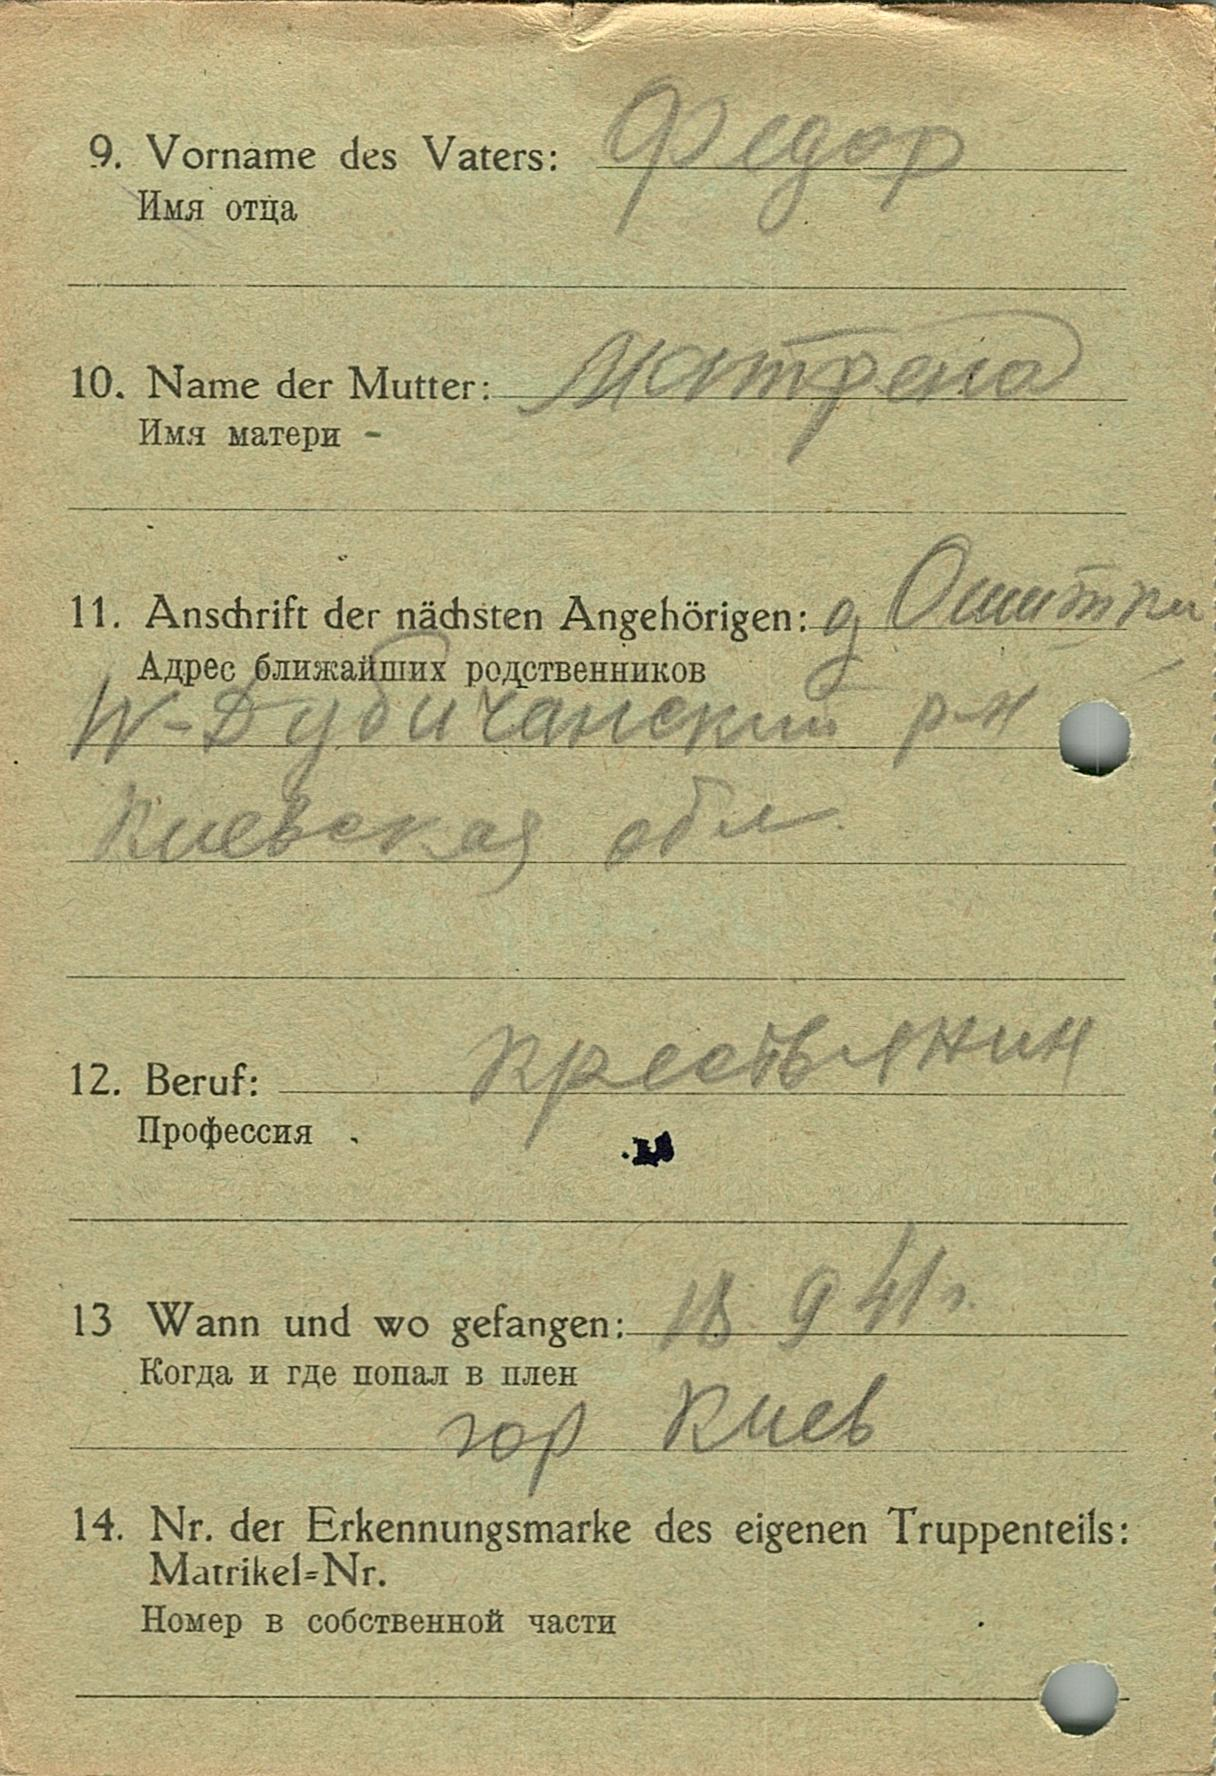 9. Vorname des Vaters: Федор
Имя отца
10. Name der Mutter: Матрена
Имя матери -
11. Anschrift der nächsten Angehörigen: д Ошитки
Адрес ближайших родственников
Н-Дубичанский р-н
Киевская обл.
12. Beruf: Крестьянин
Профессия
13 Wann und wo gefangen: 18 9 41 г.
Когда и где попал в плен
гор Киев
14. Nr. der Erkennungsmarke des eigenen Truppenteils:
Matrikel=Nr.
Номер в собственной части